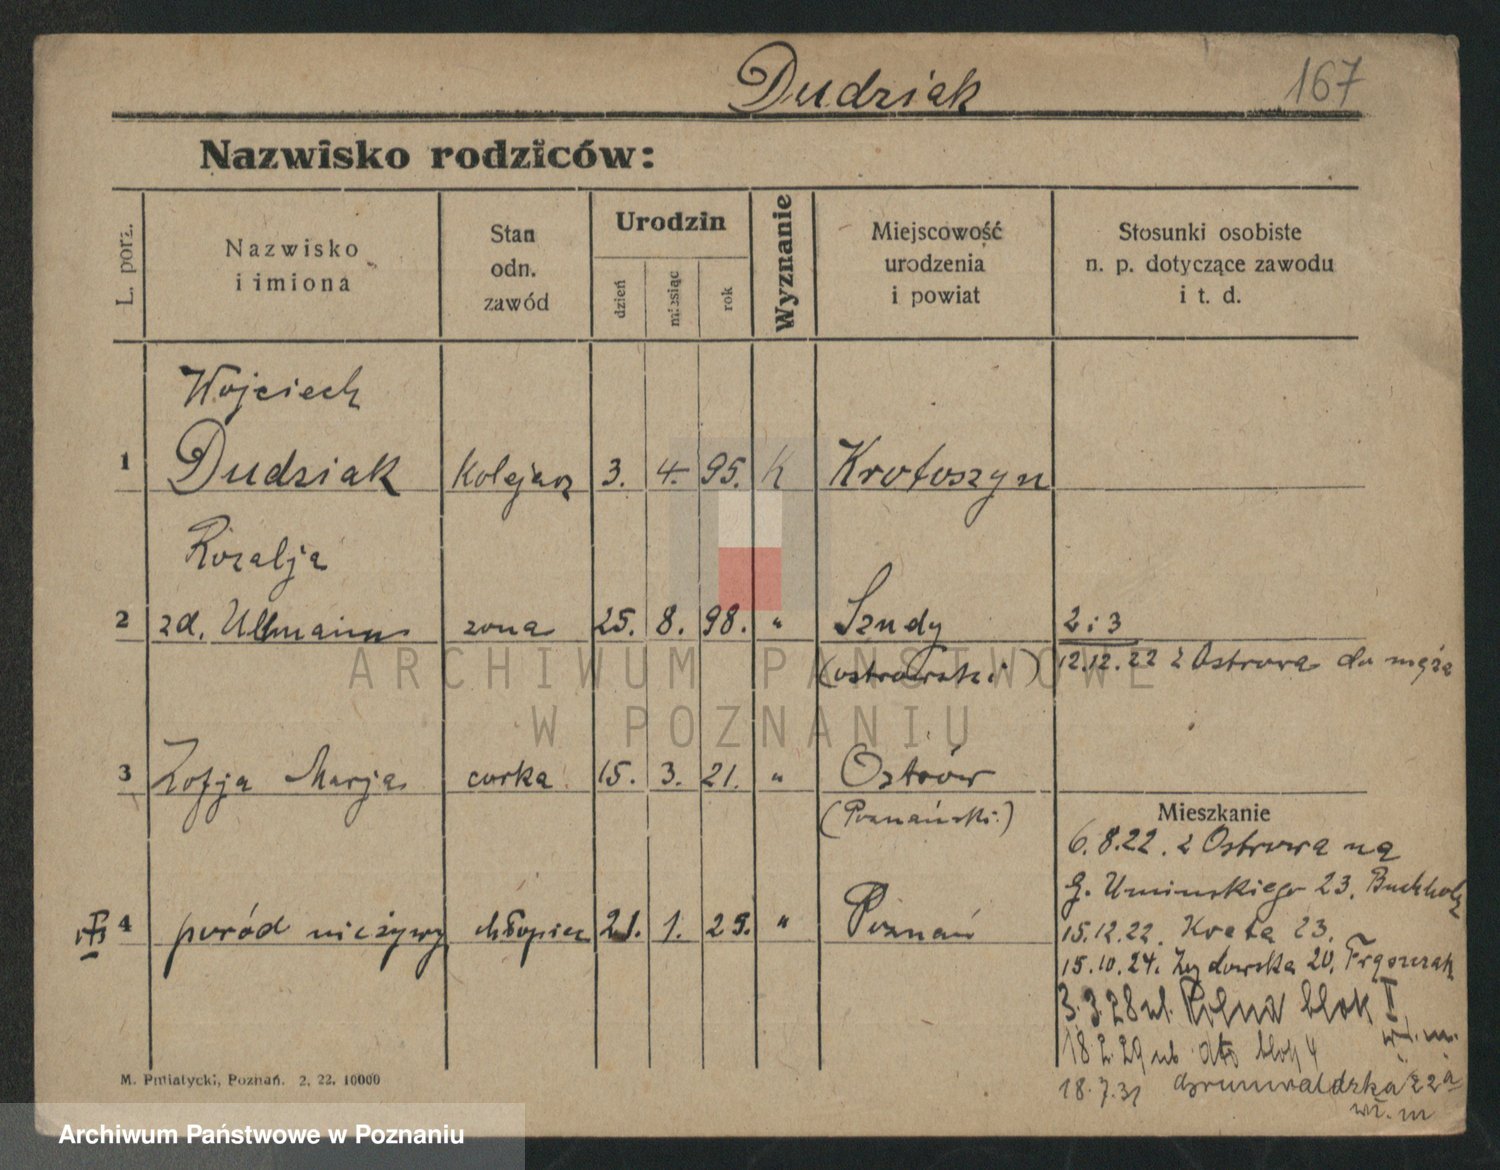 Dudziak
167
Nazwisko rodziców:
L. porz.
Nazwisko
i imiona
Stan
odn.
zawód
Urodzin
dzień
miesiąc
rok
Wyznanie
Miejscowość
urodzenia
i powiat
Stosunki osobiste
n. p. dotyczące zawodu
i t. d.
Wojciech
1 Dudziak kolejarz 3. 4. 95. K Krotoszyn
Rozalja
2 zd. Ullmann zona 25. 8. 98. " 2 i 3
(ostrowski) 12.12.22 z Ostrowa do męża
3 Zofja Marja corka 15. 3. 21. " Ostrów
(Poznański.)
Mieszkanie
6.8.22. z Ostrowa na
G. Umińskiego 23, Buchholz
4 poród nieżywy chłopiec 21. 1. 29. " Poznań
15.12.22. 23.
15.10.24. Żydowska 20,
3.3.28 ul. Polna blok I
wł. m.
18.2.29 ub dto blok 4
18.7.31 Grunwaldzka 22a
wł. m
M. Pniatycki, Poznań. 2, 22. 10000
ARCHIWUM PAŃSTWOWE
W POZNANIU
Archiwum Państwowe w Poznaniu